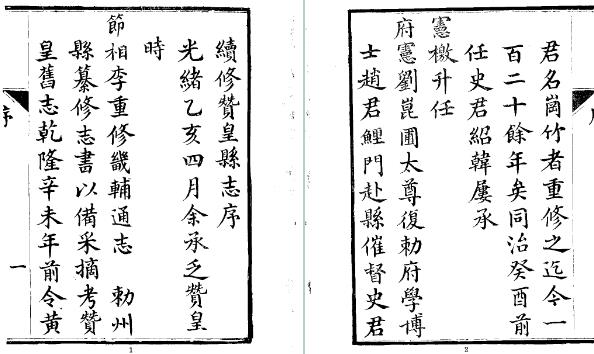 續修贊皇縣志序
光緒乙亥四月余承乏贊皇
時
節相李重修畿輔通志　勅州
縣纂修志書以備采摘考贊
皇舊志乾隆辛未年前令黃
序
一
1
君名崗竹者重修之迄今一
百二十餘年矣同治癸酉前
任史君紹韓屢承
憲檄升任
府憲劉崑圃太尊復勅府學博
士趙君鯉門赴縣催督史君
2